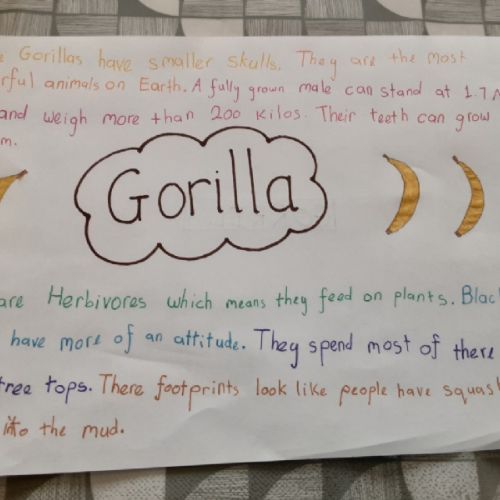 e Gorillas have smaller skulls. They are the most
rful animals on Earth. A fully grown male can stand at 1.7
and weigh more than 200 kilos. Their teeth can grow
m.
Gorilla
are Herbivores which means they feed on plants. Blac
have more of an attitude. They spend most of there
tree tops. There footprints look like people have squas
into the mud.